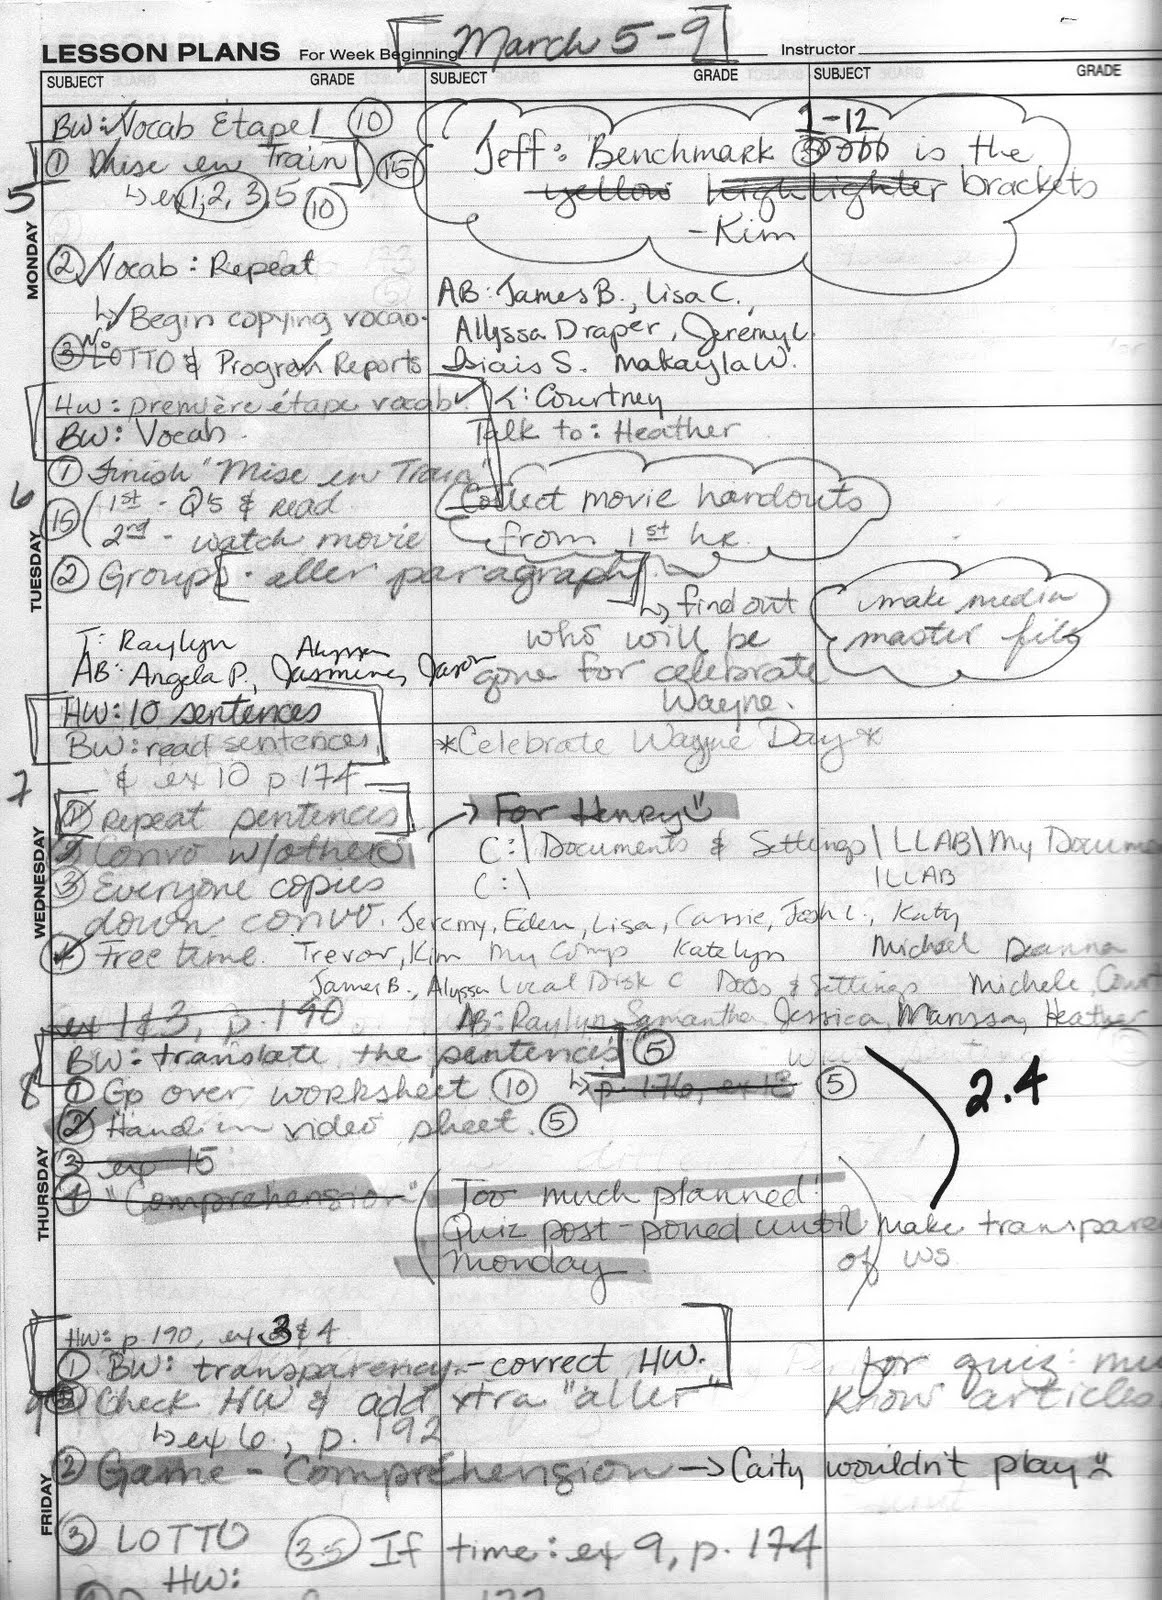 LESSON PLANS For Week Beginning March 5-9 Instructor
SUBJECT GRADE SUBJECT GRADE SUBJECT GRADE
MONDAY
5
BW: Vocab Étape 1 10
① Mise en Train 15
↳ ex 1, 2, 3, 5 10
② Vocab: Repeat
↳ Begin copying vocab.
③ No LOTTO & Progress Reports
HW: première étape vocab.
1-12
Jeff: Benchmark is the
yellow highlighter brackets
-Kim
AB: James B., Lisa C.,
Allyssa Draper, Jeremy L.
Isiais S. Makayla W.
T: Courtney
TUESDAY
6
BW: Vocab.
① Finish "Mise en Train"
15 1st - Q5 & read
2nd - watch movie
② Groups · aller paragraph
T: Raylyn
Alyssa
AB: Angela P., Jasmine, Jason
HW: 10 sentences
Talk to: Heather
Collect movie handouts
from 1st hr.
↳ find out
who will be
gone for celebrate
Wayne.
make media
master file
WEDNESDAY
7
BW: read sentences
& ex 10 p 174
① Repeat sentences
② Convo w/others
③ Everyone copies
down convo.
④ Free time.
ex 1 & 3, p. 190.
*Celebrate Wayne Day*
→ For Henry
C:\Documents & Settings\LLAB\My Docume
C:\ ILLAB
Jeremy, Eden, Lisa, Carrie, Josh L., Katy
Trevor, Kim My Comp Katelyn Michael Deanna
James B., Alyssa Local Disk C Docs & Settings Michele, Cour
AB: Raylyn Samantha Jessica, Marissa, Heather
THURSDAY
8
BW: translate the sentences 5
① Go over worksheet 10 ↳ p. 176, ex 13 5
② Hand in video sheet. 5
③ exp 15
④ "Comprehension"
2.4
Too much planned!
Quiz post-poned until
Monday
make transpare
of WS
HW: p. 190, ex 3 & 4
FRIDAY
9
① BW: transparency - correct HW.
Check HW & add xtra "aller"
↳ ex 6, p. 192
② Game - Compréhension → Caity wouldn't play
③ LOTTO 3.5 If time: ex 9, p. 174
HW:
for quiz: mu
know articles